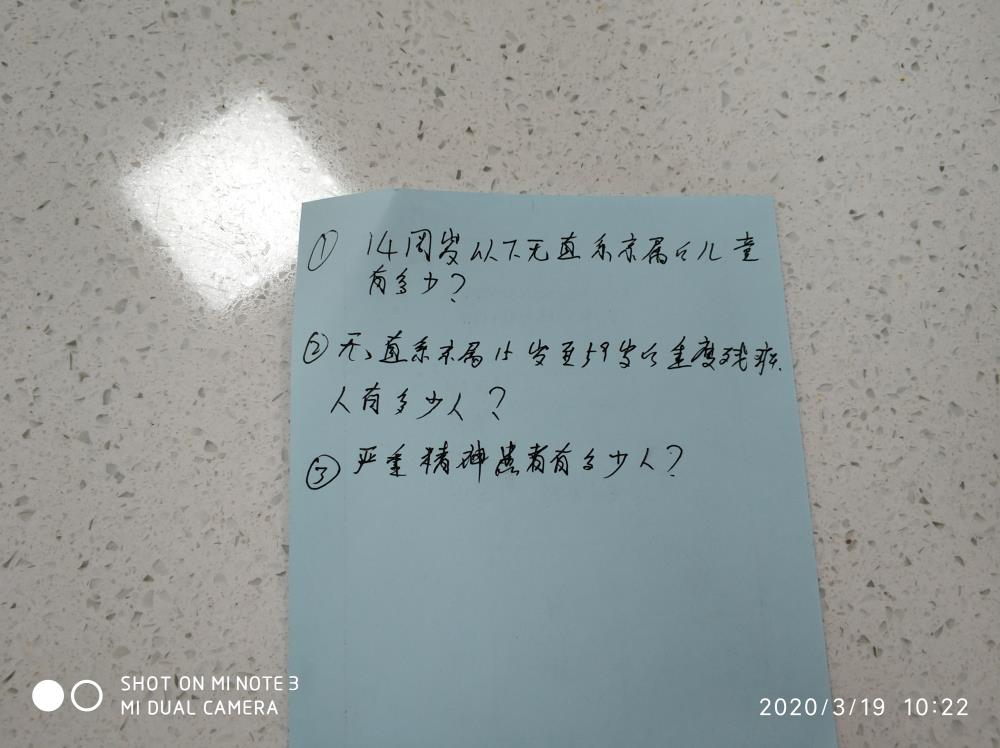 ① 14周岁以下无直系亲属的儿童
有多少?
② 无直系亲属15岁至59岁的重度残疾
人有多少人?
③ 严重精神患者有多少人?
SHOT ON MI NOTE 3
MI DUAL CAMERA
2020/3/19 10:22